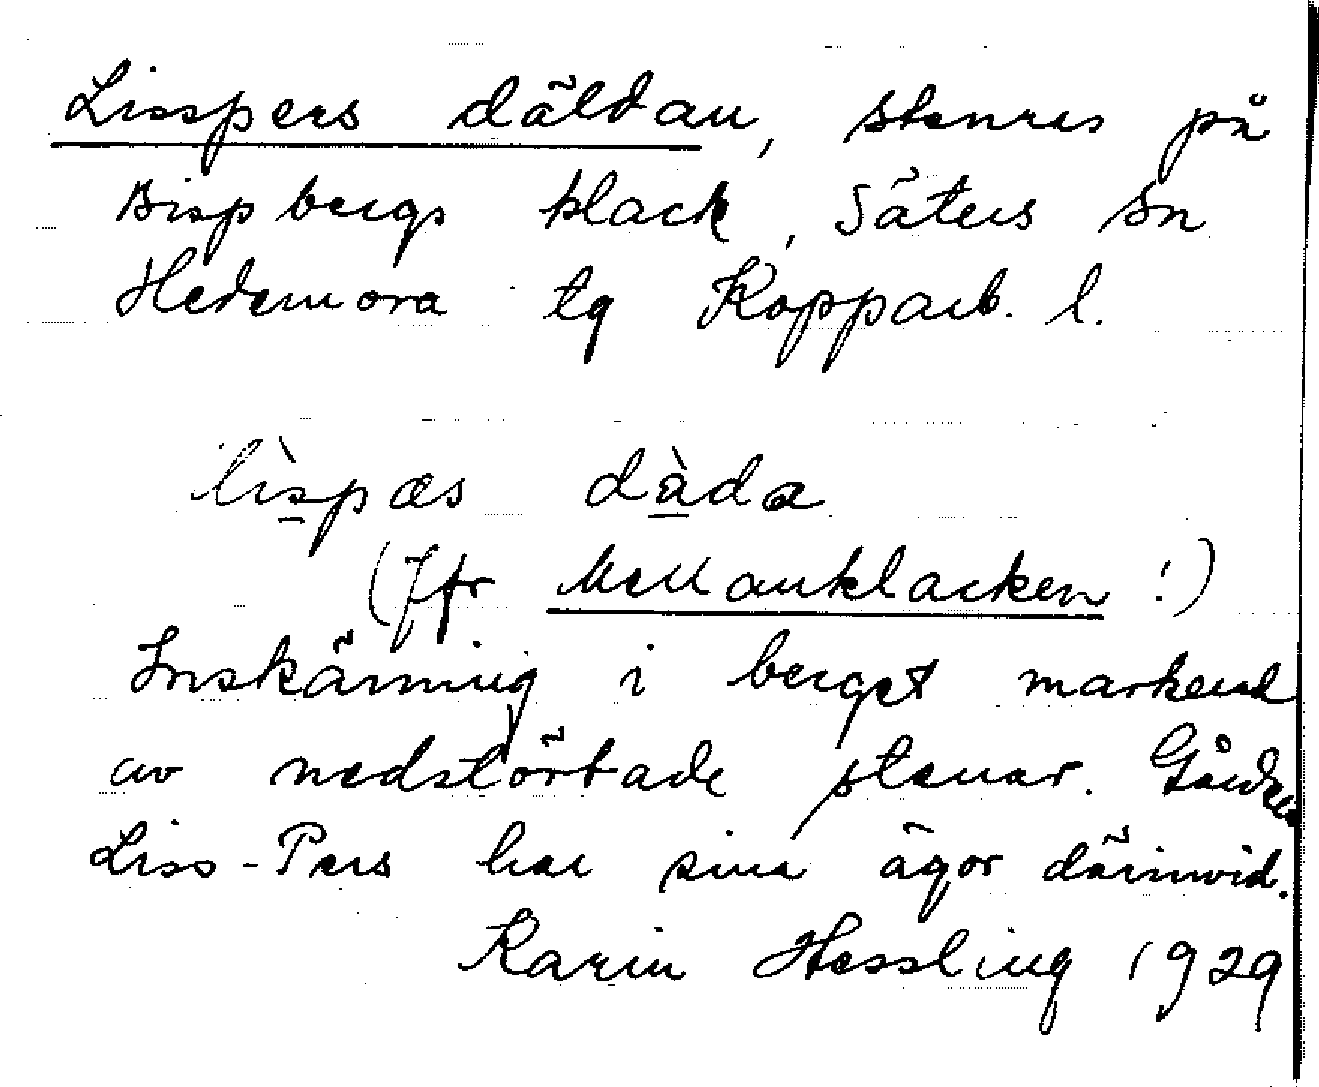 Lisspers däldan, stenras på
Bispbergs klack, Säters sn
Hedemora tg Kopparb. l.
lìspæs dàda
(Jfr Mellanklacken!)
Inskärning i berget markerad
av nedstörtade stenar. Gården
Liss-Pers har sina ägor därinvid.
Karin Hessling 1929